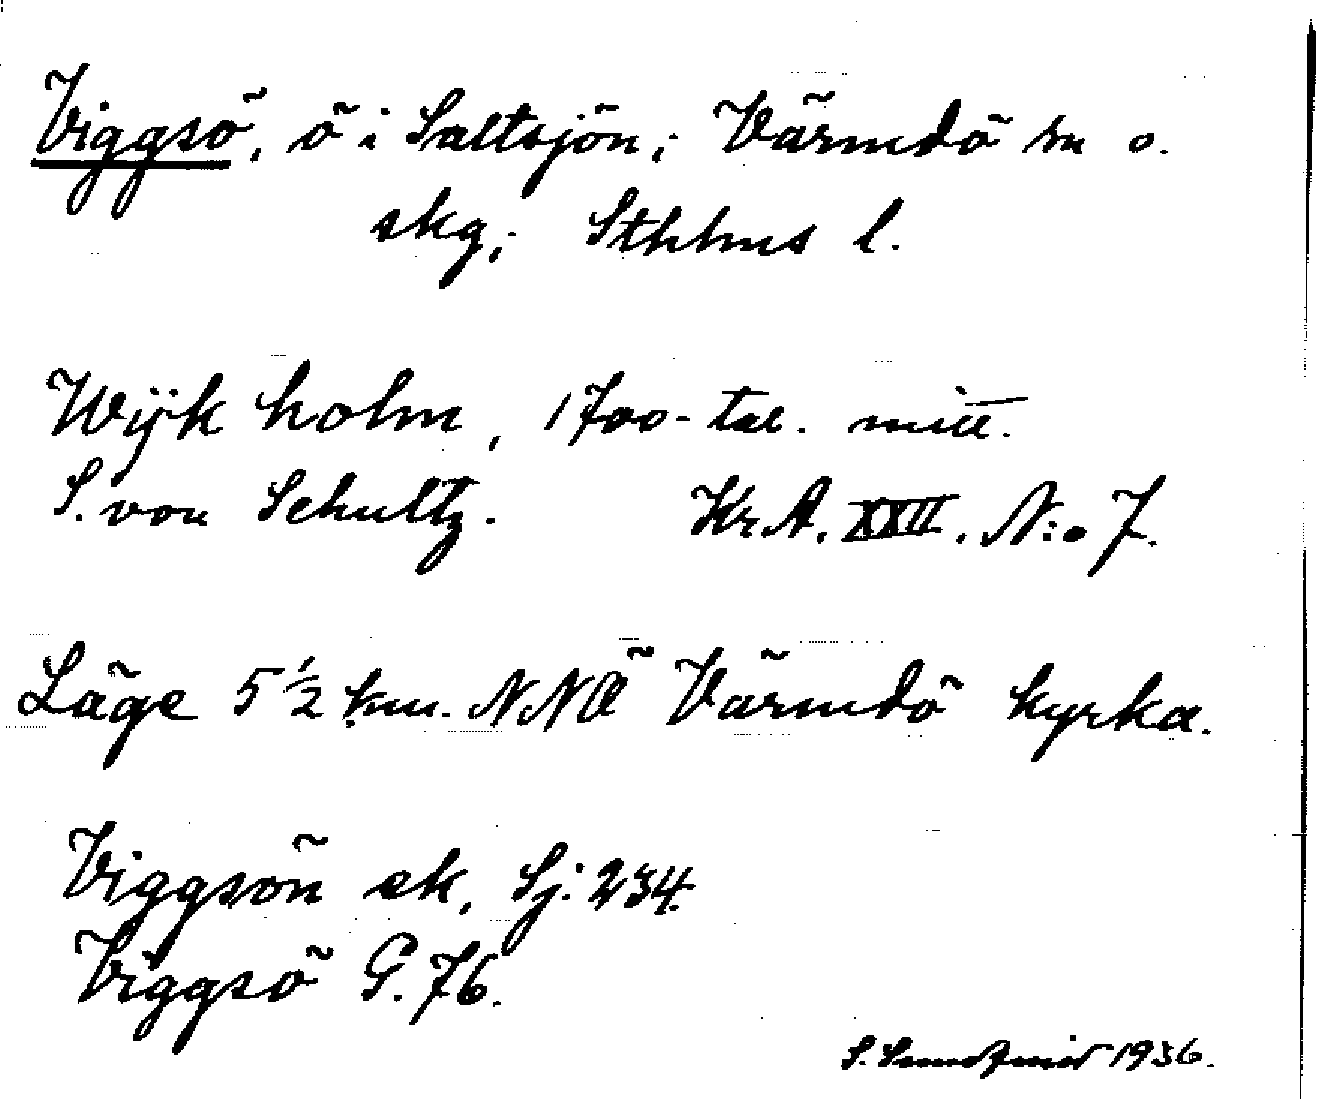 Viggsö, ö i Saltsjön; Värmdö sn o.
skg; Sthlms l.
Wijk holm, 1700-tal. mitt.
S. von Schultz. Kr.A. XXII. N:o 7.
Läge 5 1/2 km. NNÖ Värmdö kyrka.
Viggsön ek, Sj: 234.
Viggsö G. 76.
S. 1936.